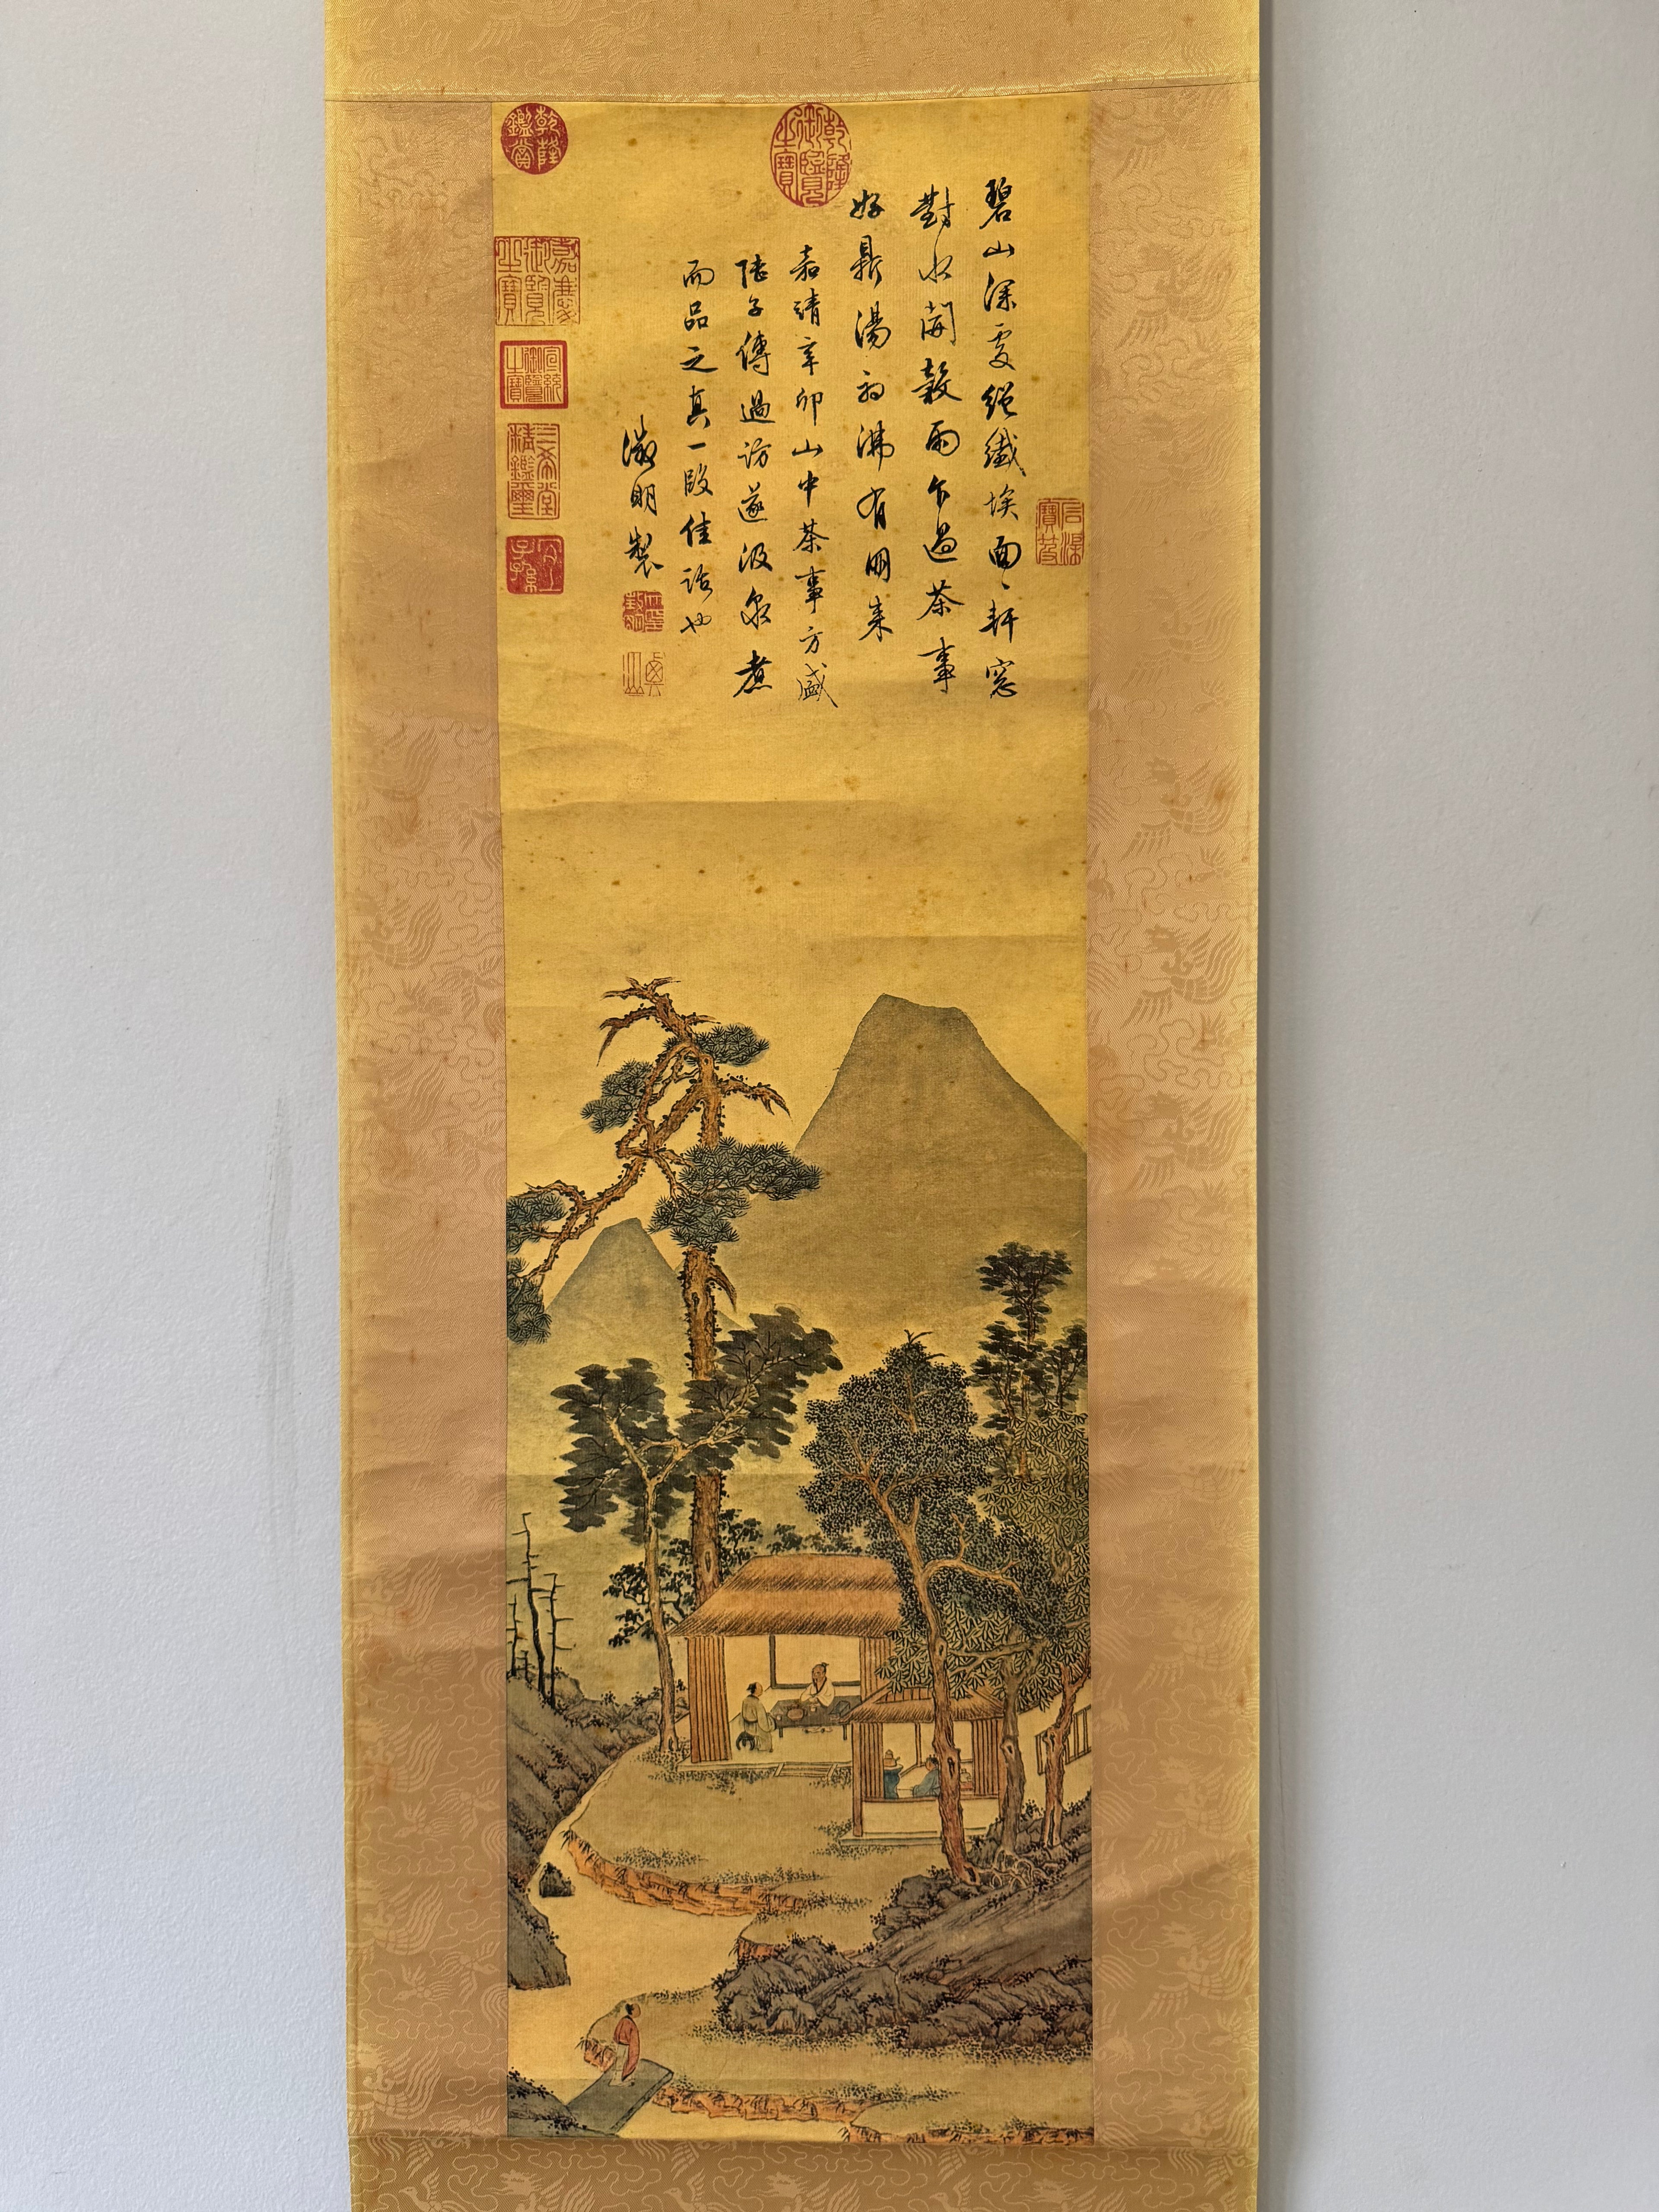 碧山深處絕纖埃面〻軒窓
對水開穀雨乍過茶事
好鼎湯初沸有朋来
嘉靖辛卯山中茶事方盛
陸子傳過訪遂汲泉煮
而品之真一段佳話也
徵明製
乾隆御覽之寶
乾隆鑑賞
嘉慶御覽之寶
宣統御覽之寶
三希堂精鑑璽
宜子孫
石渠寶笈